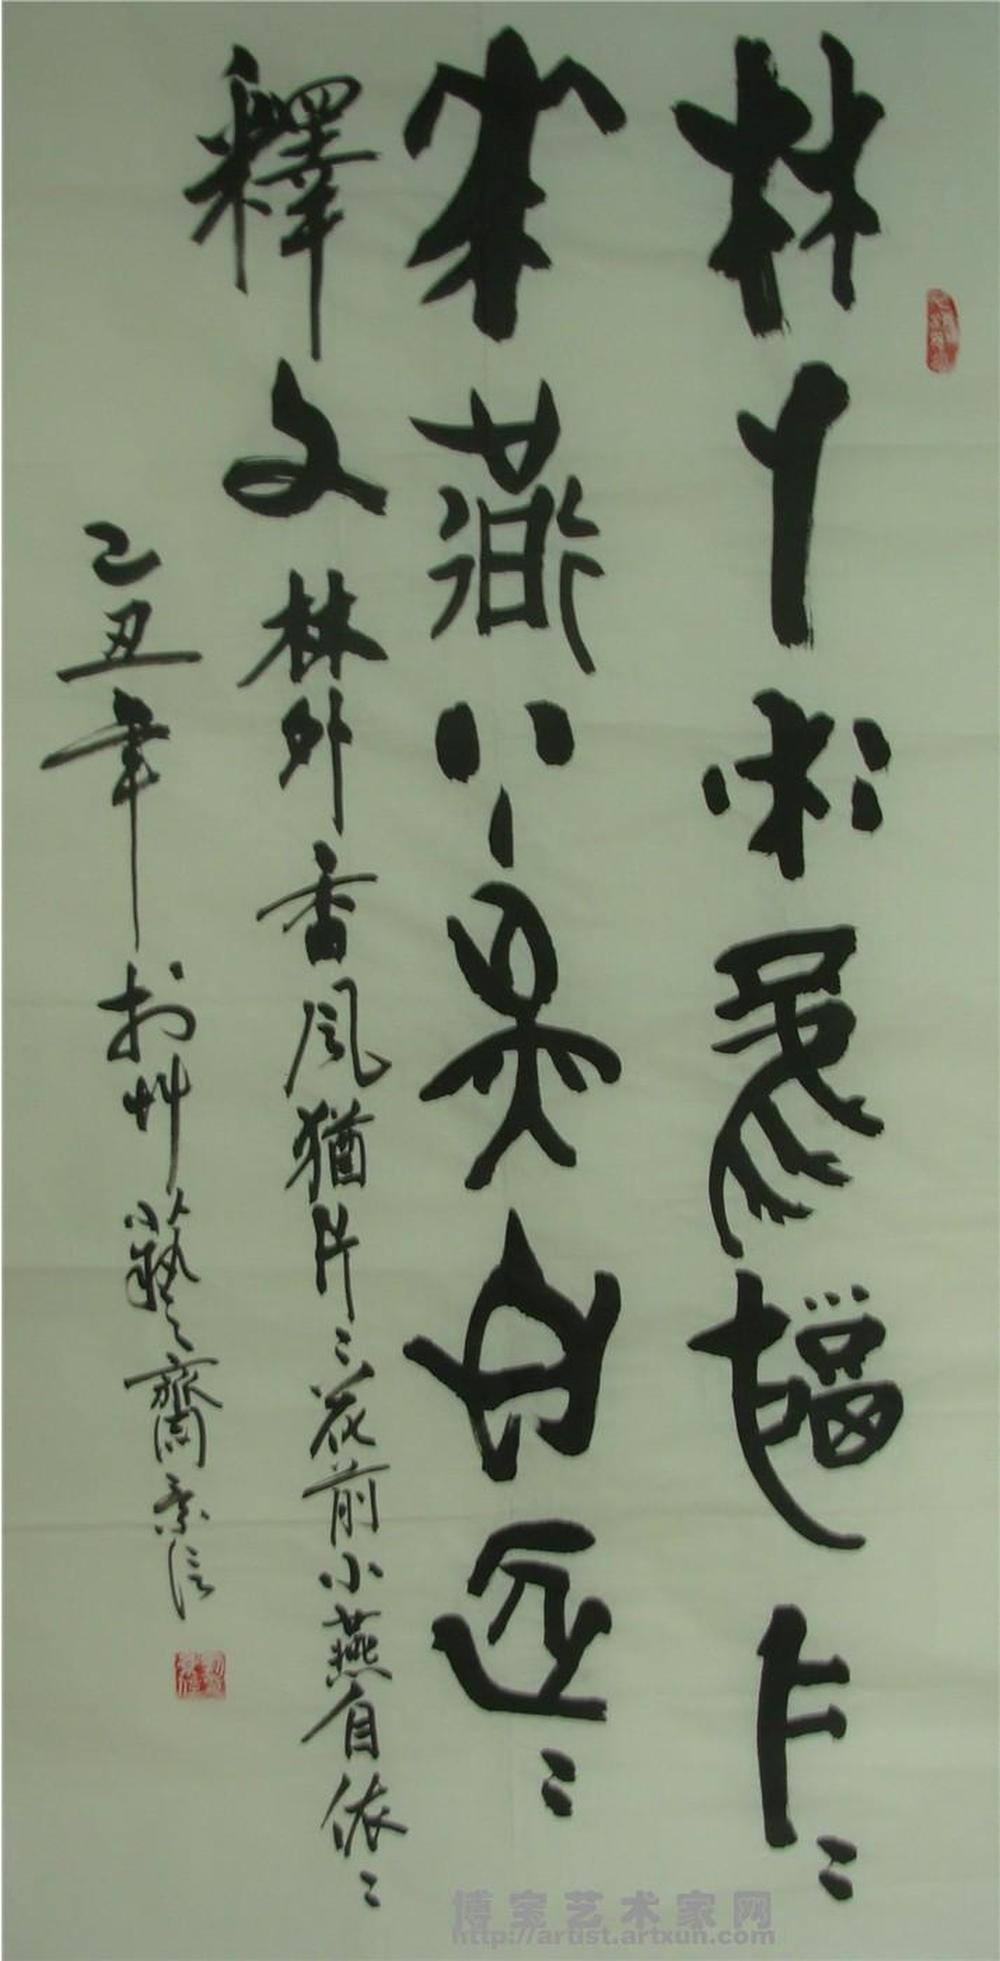 林外香風猶片〻
花前小燕自依〻
釋文 林外香風猶片〻花前小燕自依〻
己丑年於艸藝之齋
博宝艺术家网
http://artist.artxun.com